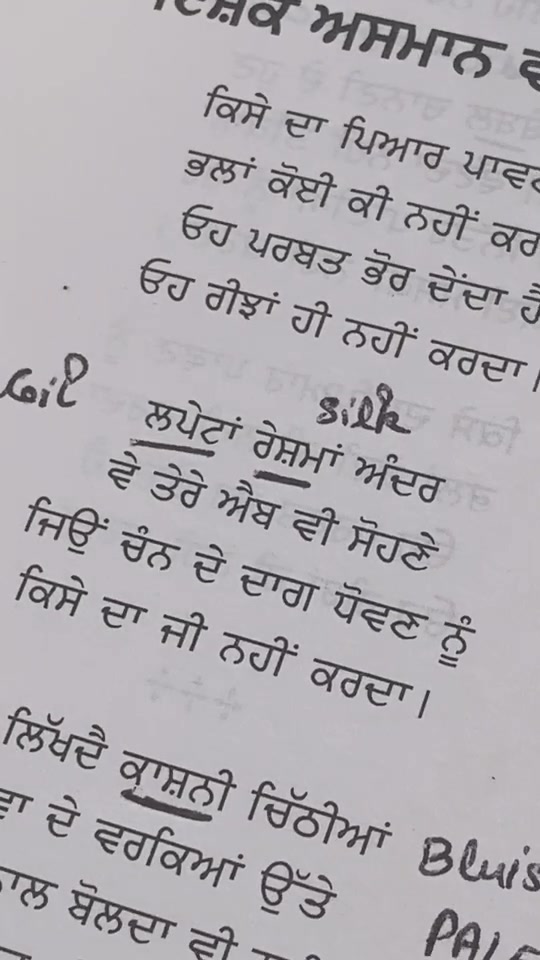 ਇਸ਼ਕ ਅਸਮਾਨ
ਕਿਸੇ ਦਾ ਪਿਆਰ
ਭਲਾਂ ਕੋਈ ਕੀ ਨਹੀਂ
ਓਹ ਪਰਬਤ ਭੋਰ ਦੇਂਦਾ ਹੈ
ਓਹ ਰੀਝਾਂ ਹੀ ਨਹੀਂ ਕਰਦਾ।
silk
ਲਪੇਟਾਂ ਰੇਸ਼ਮਾਂ ਅੰਦਰ
ਵੇ ਤੇਰੇ ਐਬ ਵੀ ਸੋਹਣੇ
ਜਿਉਂ ਚੰਨ ਦੇ ਦਾਗ ਧੋਵਣ ਨੂੰ
ਕਿਸੇ ਦਾ ਜੀ ਨਹੀਂ ਕਰਦਾ।
ਲਿੱਖਦੈ ਕਾਸ਼ਨੀ ਚਿੱਠੀਆਂ
ਦੇ ਵਰਕਿਆਂ ਉੱਤੇ
ਬੋਲਦਾ ਵੀ